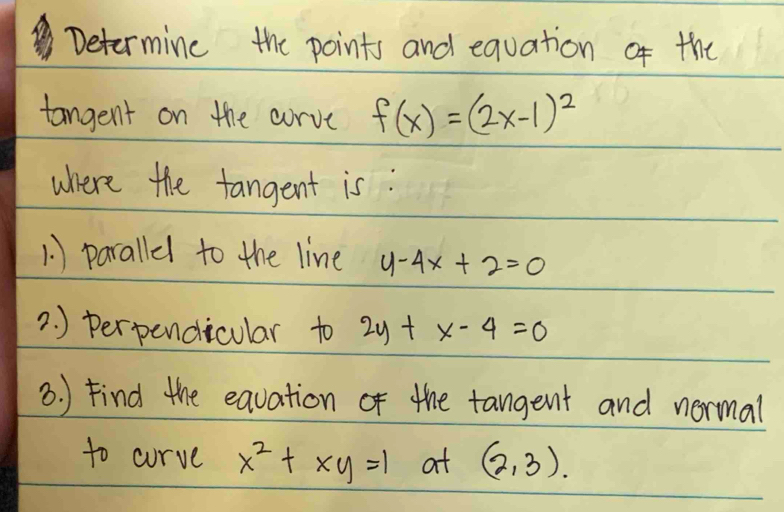 Determine the points and equation of the
tangent on the curve f(x) = (2x-1)²
where the tangent is :
1.) parallel to the line y-4x + 2=0
2.) Perpendicular to 2y + x - 4 =0
3.) Find the equation of the tangent and normal
to curve x² + xy =1 at (2,3).